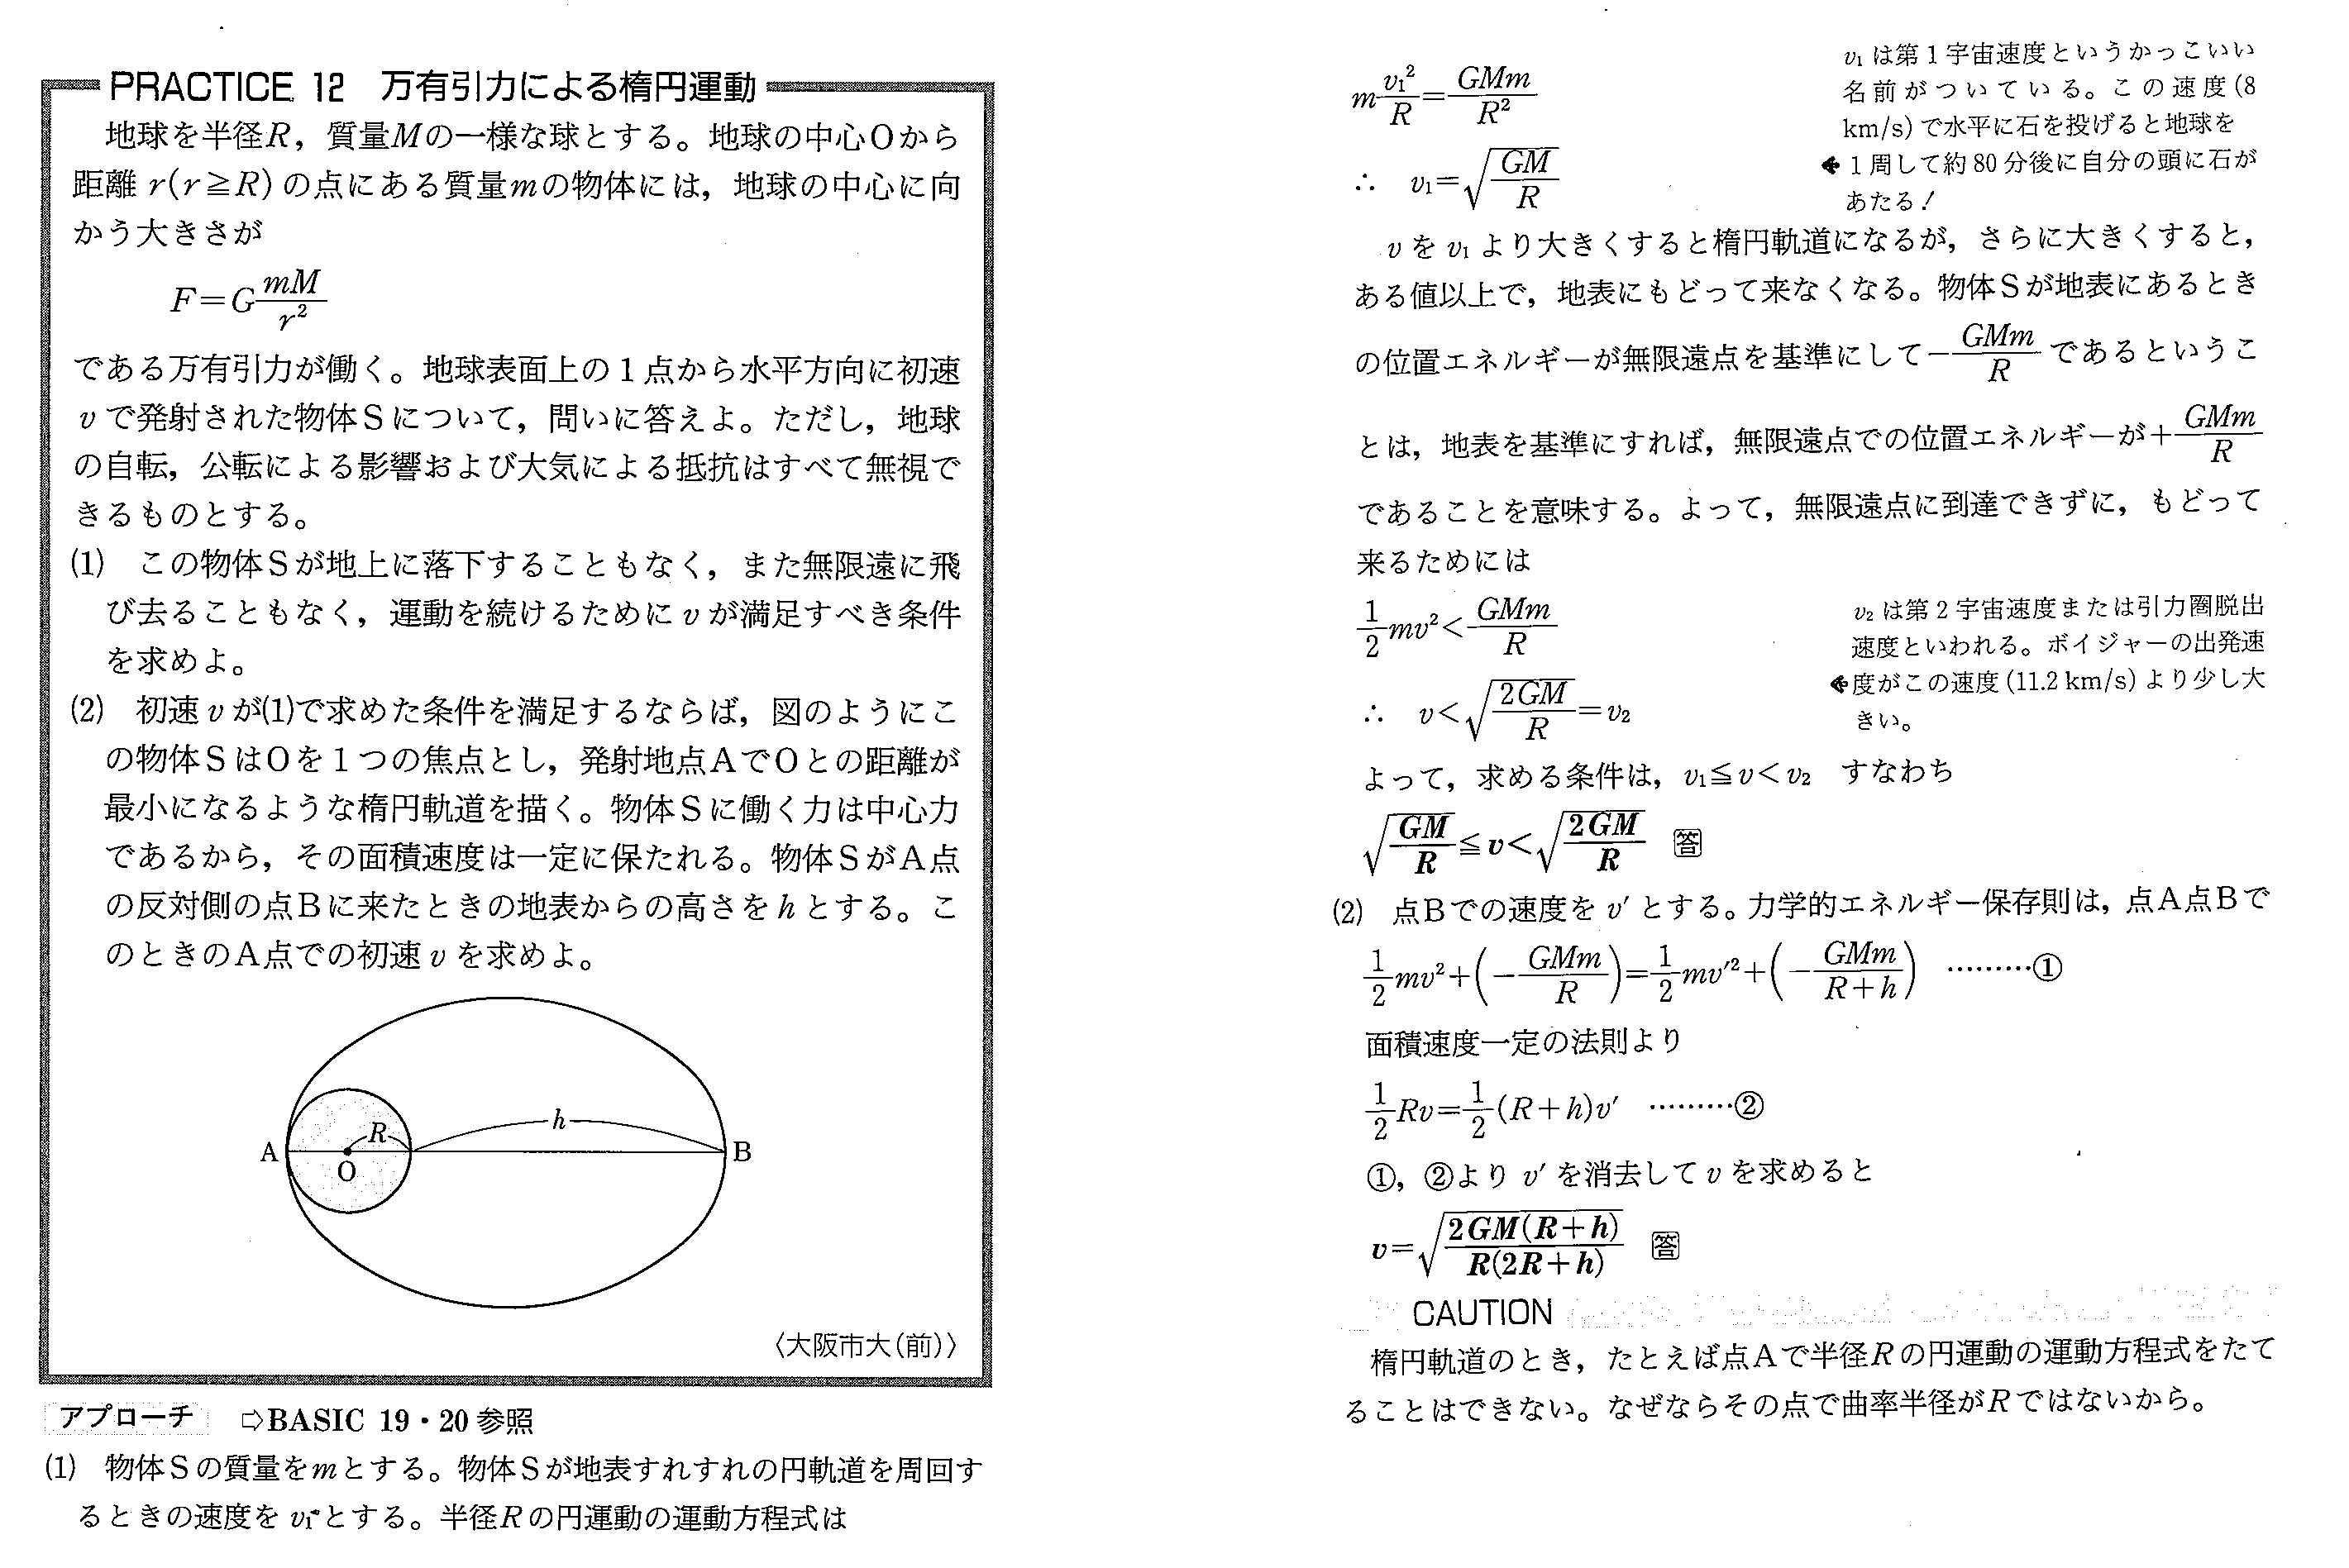 PRACTICE 12　万有引力による楕円運動
地球を半径R，質量Mの一様な球とする。地球の中心Oから
距離 r(r≧R) の点にある質量mの物体には，地球の中心に向
かう大きさが
F=G\frac{mM}{r^2}
である万有引力が働く。地球表面上の１点から水平方向に初速
vで発射された物体Sについて，問いに答えよ。ただし，地球
の自転，公転による影響および大気による抵抗はすべて無視で
きるものとする。
(1)　この物体Sが地上に落下することもなく，また無限遠に飛
び去ることもなく，運動を続けるためにvが満足すべき条件
を求めよ。
(2)　初速vが(1)で求めた条件を満足するならば，図のようにこ
の物体SはOを１つの焦点とし，発射地点AでOとの距離が
最小になるような楕円軌道を描く。物体Sに働く力は中心力
であるから，その面積速度は一定に保たれる。物体SがA点
の反対側の点Bに来たときの地表からの高さをhとする。こ
のときのA点での初速vを求めよ。
h
R
A
O
B
〈大阪市大(前)〉
アプローチ　⇨BASIC 19・20 参照
(1)　物体Sの質量をmとする。物体Sが地表すれすれの円軌道を周回す
るときの速度を v₁とする。半径Rの円運動の運動方程式は
m\frac{v_1^2}{R}=\frac{GMm}{R^2}
∴　v_1=\sqrt{\frac{GM}{R}}
v₁は第１宇宙速度というかっこいい
名前がついている。この速度(8
km/s)で水平に石を投げると地球を
１周して約80分後に自分の頭に石が
あたる！
vをv₁より大きくすると楕円軌道になるが，さらに大きくすると，
ある値以上で，地表にもどって来なくなる。物体Sが地表にあるとき
の位置エネルギーが無限遠点を基準にして-\frac{GMm}{R}であるというこ
とは，地表を基準にすれば，無限遠点での位置エネルギーが+\frac{GMm}{R}
であることを意味する。よって，無限遠点に到達できずに，もどって
来るためには
\frac{1}{2}mv^2<\frac{GMm}{R}
∴　v<\sqrt{\frac{2GM}{R}}=v_2
v₂は第２宇宙速度または引力圏脱出
速度といわれる。ボイジャーの出発速
度がこの速度(11.2 km/s)より少し大
きい。
よって，求める条件は，v₁≦v<v₂　すなわち
\sqrt{\frac{GM}{R}}≦v<\sqrt{\frac{2GM}{R}}　答
(2)　点Bでの速度をv′とする。力学的エネルギー保存則は，点A点Bで
\frac{1}{2}mv^2+\left(-\frac{GMm}{R}\right)=\frac{1}{2}mv'^2+\left(-\frac{GMm}{R+h}\right)　………①
面積速度一定の法則より
\frac{1}{2}Rv=\frac{1}{2}(R+h)v'　………②
①，②より v′ を消去してvを求めると
v=\sqrt{\frac{2GM(R+h)}{R(2R+h)}}　答
CAUTION
楕円軌道のとき，たとえば点Aで半径Rの円運動の運動方程式をたて
ることはできない。なぜならその点で曲率半径がRではないから。